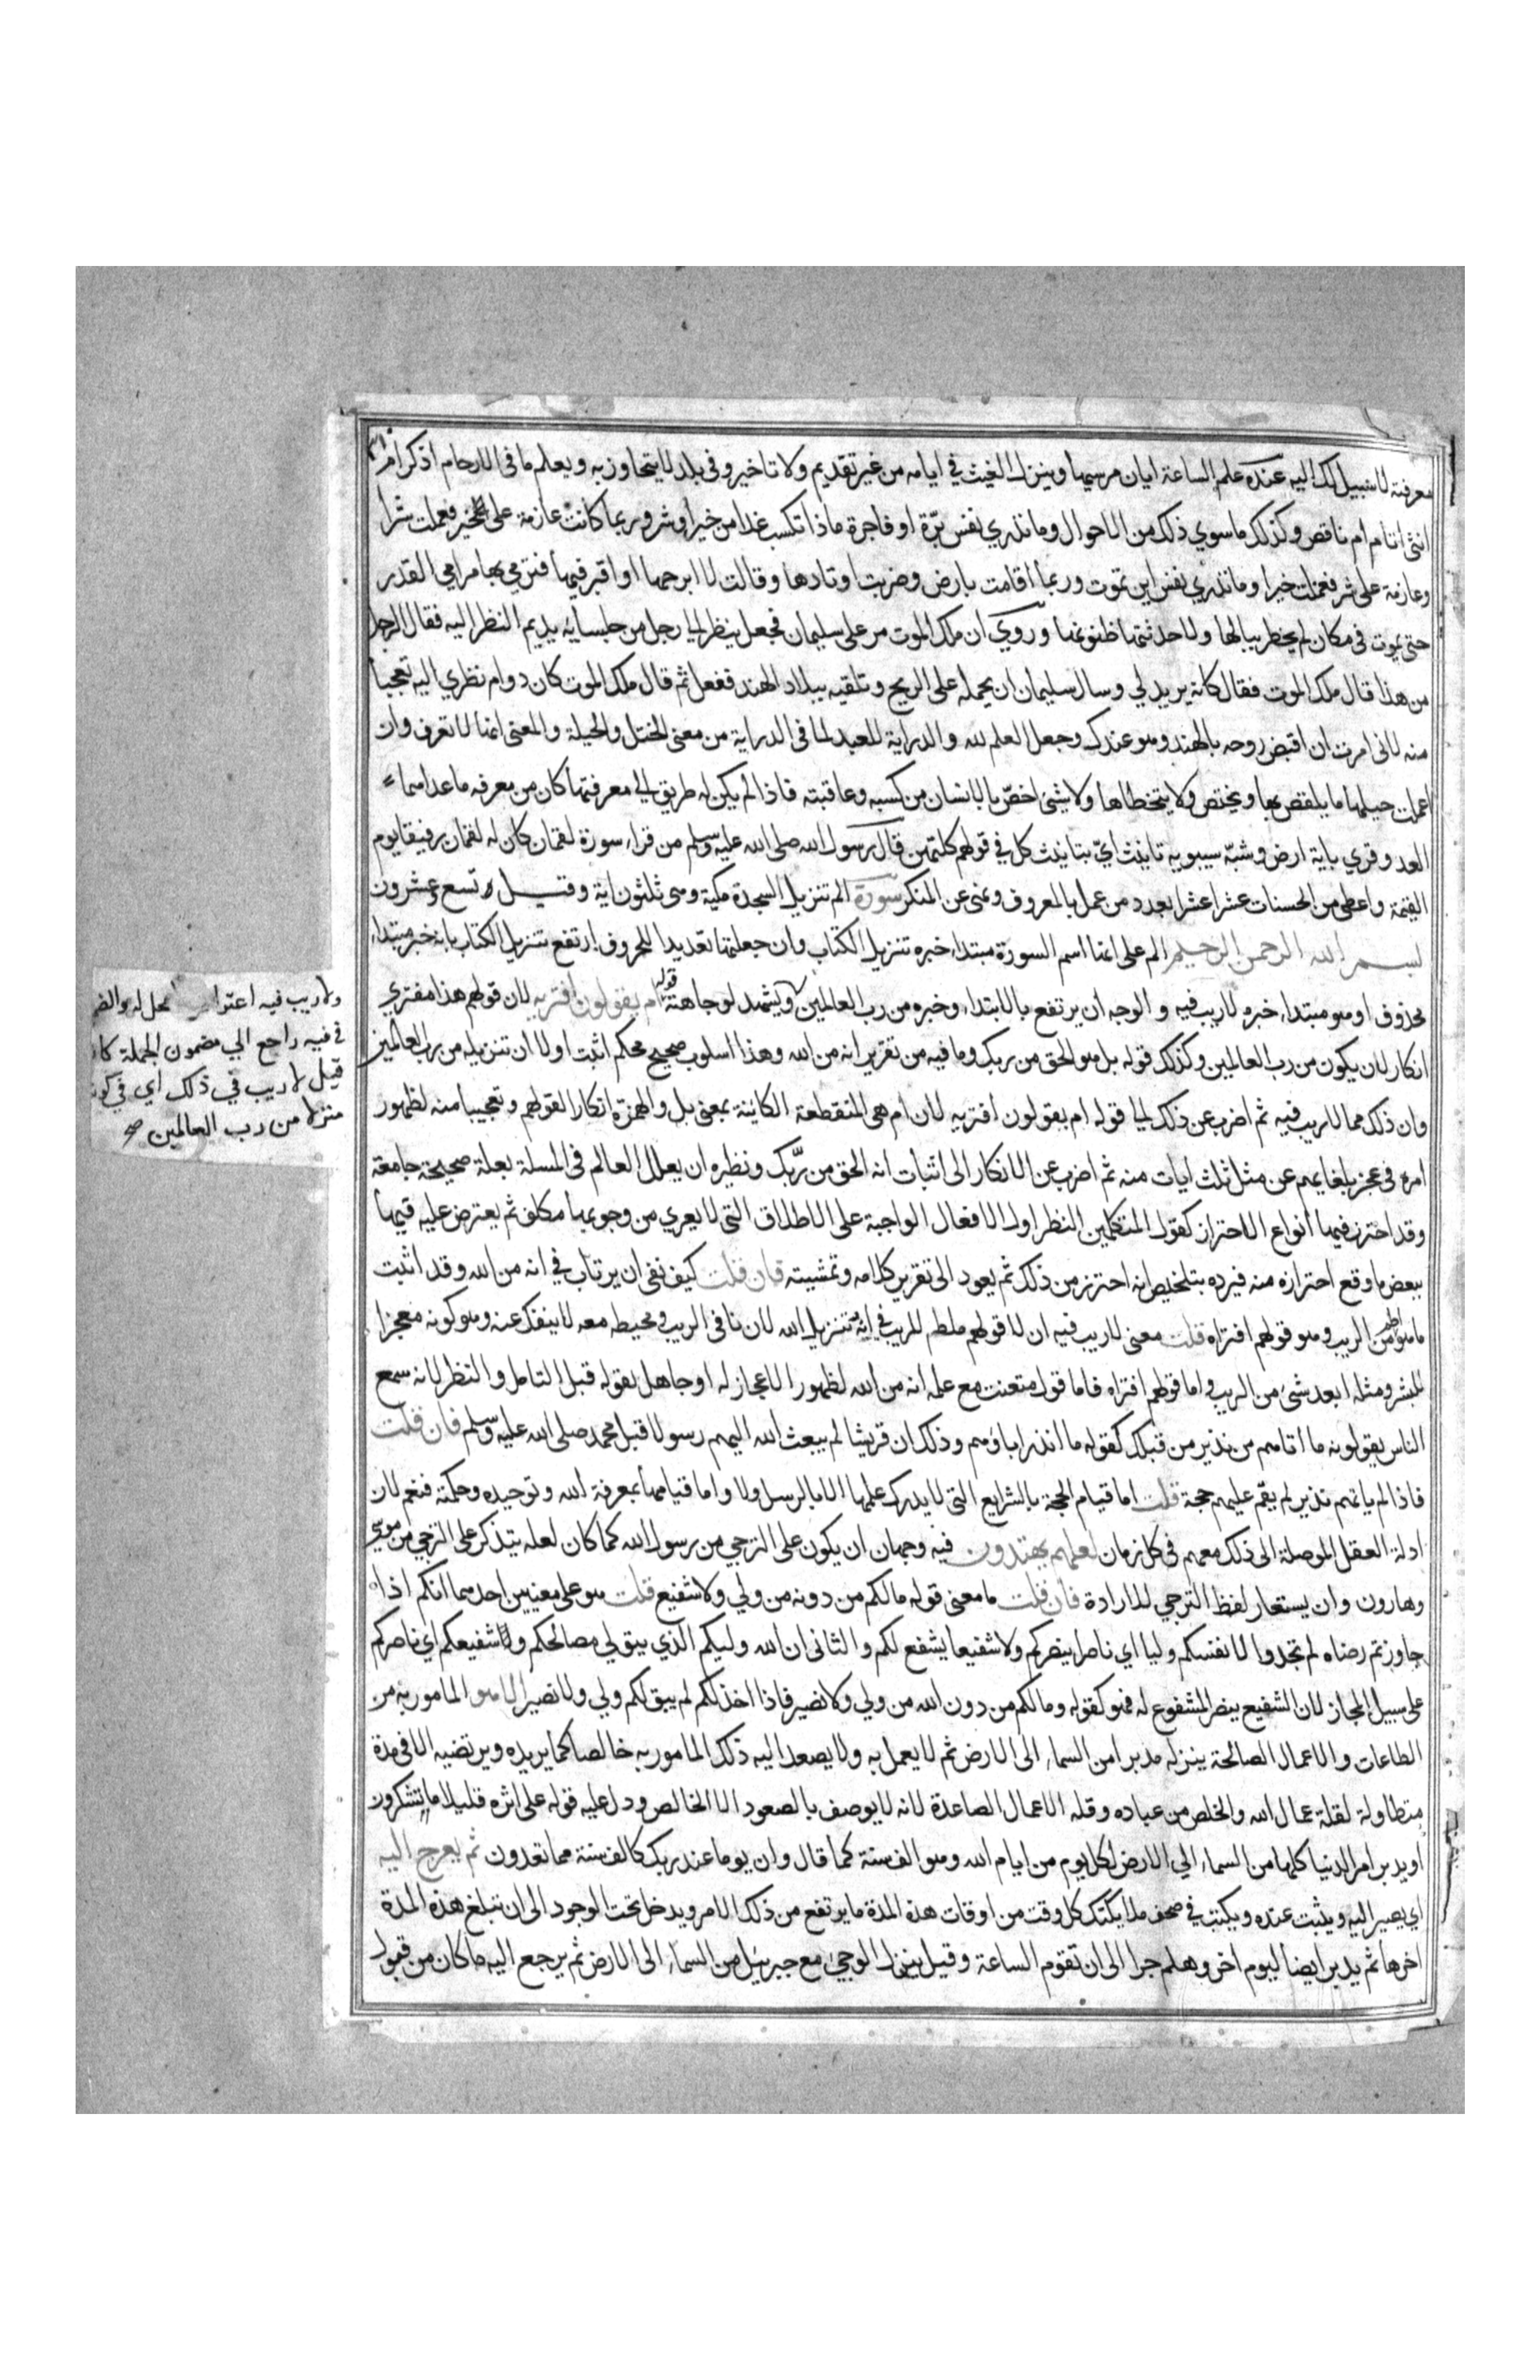 معرفته لا سبيل لك اليه عنده علم الساعة ايان مرسيها وينزل الغيث في ايامه من غير تقديم ولا تاخير وفي بلد لا يتجاوز به ويعلم ما في الارحام اذكر ام
انثى اتام ام ناقص وكذلك ما سوي ذلك من الاحوال وما تدري نفس برّة او فاجرة ماذا تكسب غدا من خير او شر وربما كانت عازمة على خير فعملت شرا
وعازمة على شر فعملت خيرا وما تدري نفس اين تموت وربما اقامت بارض وضربت اوتادها وقالت لا ابرحها او اقبر فيها فترمي بها مرامي القدر
حتى يموت في مكان لم يخطر ببالها ولا حدثتها ظنونها وروي ان ملك الموت مر على سليمان فجعل ينظر الي رجل من جلسايه يديم النظر اليه فقال الرجل
من هذا قال ملك الموت فقال كانه يريدني وسال سليمان ان يحمله على الريح وتلقيه ببلاد الهند ففعل ثم قال ملك الموت كان دوام نظري اليه تعجبا
منه لاني امرت ان اقبض روحه بالهند وهو عندك وجعل العلم لله والدراية للعبد لما في الدراية من معنى الختل والحيلة والمعنى انها لا تعرف وان
اعملت حيلها ما يلصق بها ويختص ولا يتخطاها ولا شئ اخصّ بالانسان من كسبه وعاقبته فاذا لم يكن له طريق الي معرفتهما كان من معرفه ما عداهما
ابعد وقري باية ارض وشبّه سيبويه تانيث ايّ بتانيث كل في قولهم كلتهن قال رسول الله صلى الله عليه وسلم من قراء سورة لقمان كان له لقمان رفيقا يوم
القيمة واعطى من الحسنات عشرا عشرا بعدد من عمل بالمعروف ونهى عن المنكر سورة الم تنزيل السجدة مكية وهى ثلثون اية وقيل تسع وعشرون
بسم الله الرحمن الرحيم الم على انها اسم السورة مبتداء خبره تنزيل الكتاب وان جعلتها تعديدا للحروف ارتفع تنزيل الكتاب بانه خبر مبتداء
محذوف او هو مبتداء خبره لا ريب فيه والوجه ان يرتفع بالابتداء وخبره من رب العالمين ويشهد لوجاهته قوله ام يقولون افتريه لان قولهم هذا مفتري
انكار لان يكون من رب العالمين وكذلك قوله بل هو الحق من ربك وما فيه من تقرير انه من الله وهذا اسلوب صحيح محكم اثبت اولا ان تنزيله من رب العالمين
وان ذلك مما لا ريب فيه ثم اضرب عن ذلك الي قوله ام يقولون افتريه لان ام هى المنقطعة الكائنة بمعنى بل والهمزة انكارا لقولهم وتعجيبا منه لظهور
امره في عجز بلغايهم عن مثل ثلث ايات منه ثم اضرب عن الانكار الى اثبات انه الحق من ربّك ونظيره ان يعلل العالم في المسلة بعلة صحيحة جامعة
وقد احترز فيها انواع الاحتراز كقول المتكلمين النظر اول الافعال الواجبة على الاطلاق التى لا يعري من وجوبها مكلف ثم يعترض عليه فيها
ببعض ما وقع احترازه منه فيرده بتلخيص انه احترز من ذلك ثم يعود الى تقرير كلامه وتمشيته فان قلت كيف نفى ان يرتاب في انه من الله وقد اثبت
ما هو اطم من الريب وهو قولهم افتراه قلت معنى لا ريب فيه ان لا قولهم ملطم للريب في انه تنزيل الله لان نافى الريب ومحيطه معه لا ينفك عنه وهو كونه معجزا
للبشر ومثله ابعد شئ من الريب واما قولهم افتراه فاما قول متعنت مع علمه انه من الله لظهور الاعجاز له او جاهل يقوله قبل التامل والنظر لانه سمع
الناس يقولونه ما اتاهم من نذير من قبلك كقوله ما انذر اباؤهم وذلك ان قريشا لم يبعث الله اليهم رسولا قبل محمد صلى الله عليه وسلم فان قلت
فاذا لم ياتهم نذير لم يقم عليهم حجة قلت اما قيام الحجة بالشرايع التى لا يدرك علمها الا بالرسل ولا واما قيامها بمعرفة الله وتوحيده وحكمته فنعم لان
ادلة العقل الموصلة الى ذلك معهم في كل زمان لعلهم يهتدون فيه وجهان ان يكون على الترجي من رسول الله كما كان لعله يتذكر على الترجي من موسي
وهارون وان يستعار لفظ الترجي للارادة فان قلت ما معنى قوله ما لكم من دونه من ولي ولا شفيع قلت هو على معنيين احدهما انكم اذا
جاوزتم رضاه لم تجدوا لانفسكم وليا اي ناصرا ينصركم ولا شفيعا يشفع لكم والثانى ان الله وليكم الذي يتولي مصالحكم وشفيعكم اي ناصركم
على سبيل المجاز لان الشفيع ينصر المشفوع له فهو كقوله وما لكم من دون الله من ولي ولا نصير فاذا اخذلكم لم يبق لكم ولي ولا نصير الامر المامور به من
الطاعات والاعمال الصالحة ينزله مدبرا من السماء الى الارض ثم لا يعمل به ولا يصعد اليه ذلك المامور به خالصا كما يريده ويرتضيه الا في مدة
متطاولة لقلة عمال الله والخلص من عباده وقله الاعمال الصاعدة لانه لا يوصف بالصعود الا الخالص ودل عليه قوله على اثره قليلا ما تشكرون
او يدبر امر الدنيا كلها من السماء الي الارض لكل يوم من ايام الله وهو الف سنة كما قال وان يوما عند ربك كالف سنة مما تعدون ثم يعرج اليه
اي يصير اليه ويثبت عنده ويكتب في صحف ملايكته كل وقت من اوقات هذه المدة ما يرتفع من ذلك الامر ويدخل تحت الوجود الى ان تبلغ هذه المدة
اخرها ثم يدبر ايضا ليوم اخر وهلم جرا الى ان تقوم الساعة وقيل ينزل الوحي مع جبريل من السماء الى الارض ثم يرجع اليه ما كان من قبول
ولا ريب فيه اعتراض لا محل له والضم
في فيه راجع الي مضمون الجملة كا
قيل لا ريب في ذلك اي في كون
منزلا من رب العالمين صح